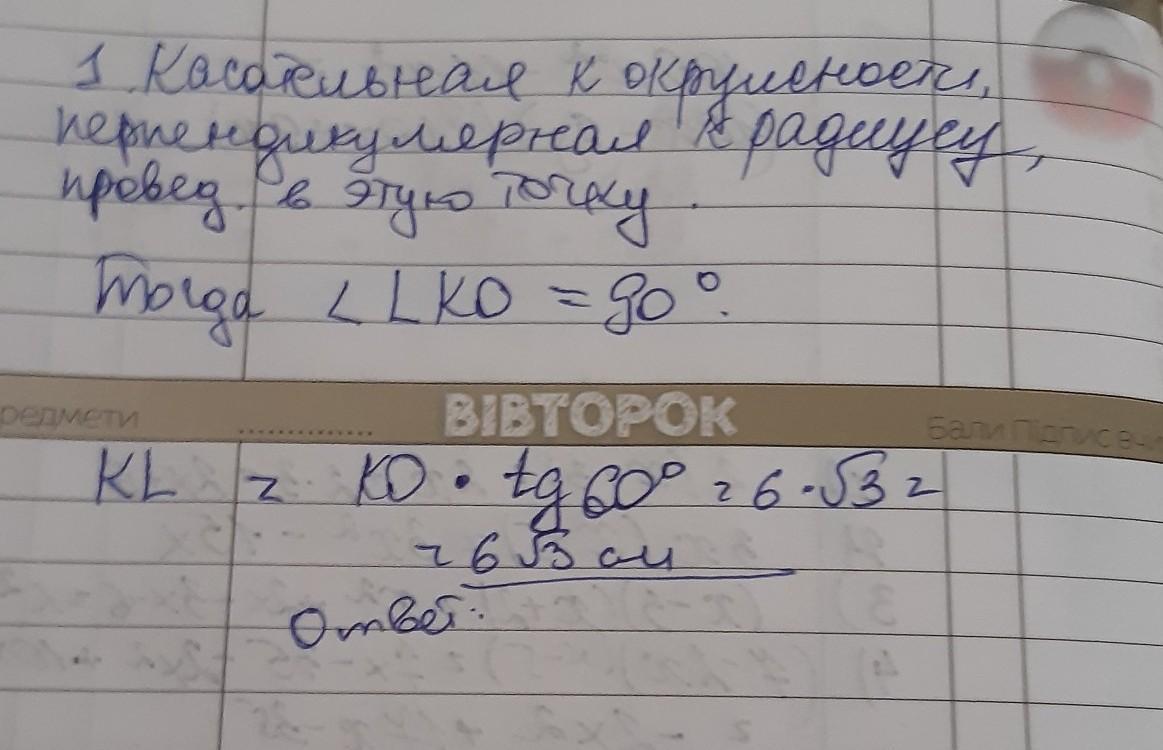 1. Касательная к окружности,
перпендикулярная к радиусу,
провед. в этую точку.
Тогда ∠ LKO = 90°.
редмети ВІВТОРОК Бали Підпис вчи
KL = KO • tg 60° = 6 • √3 =
= 6 √3 см
Ответ: